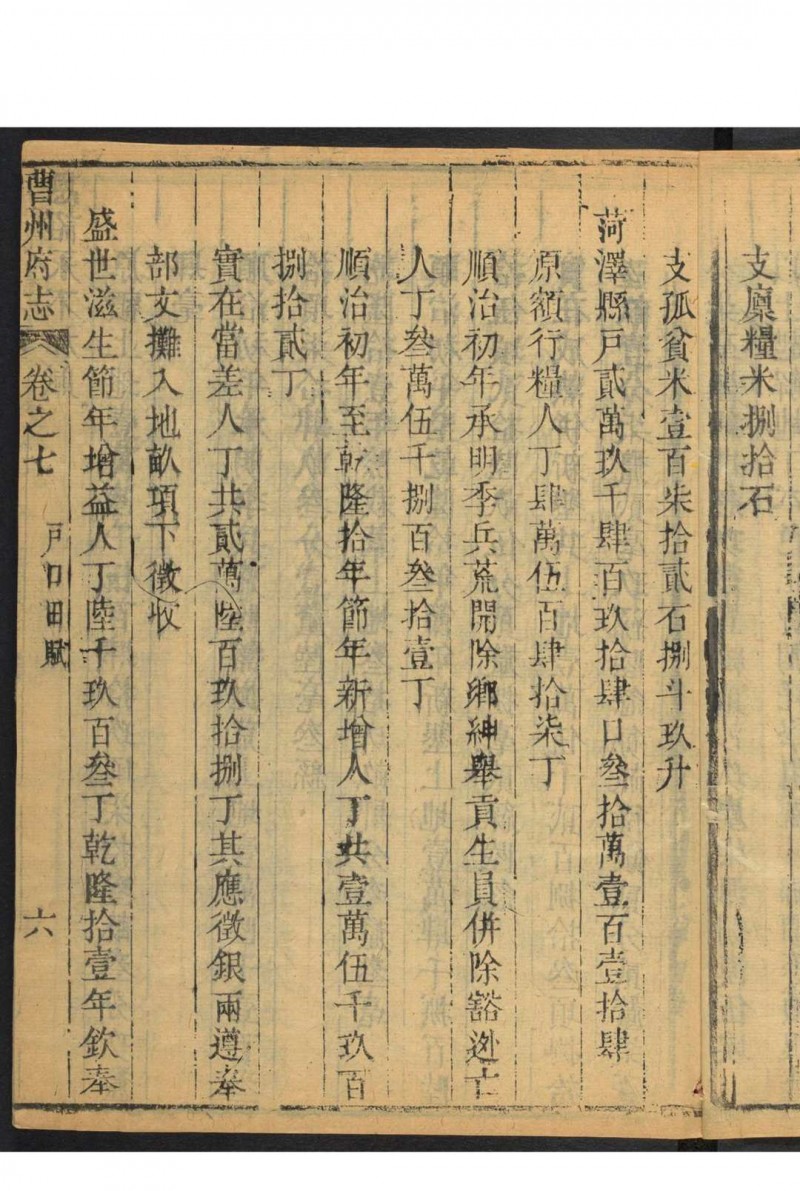 支廩糧米捌拾石
支孤貧米壹百柒拾貳石捌斗玖升
菏澤縣戸貳萬玖千肆百玖拾肆口叄拾萬壹百壹拾肆
原額行糧人丁肆萬伍百肆拾柒丁
順治初年承明季兵荒開除鄉紳舉貢生員併除豁逃亡
人丁叄萬伍千捌百叄拾壹丁
順治初年至乾隆拾年節年新增人丁共壹萬伍千玖百
捌拾貳丁
實在當差人丁共貳萬陸百玖拾捌丁其應徵銀兩遵奉
部文攤入地畝項下徵收
盛世滋生節年增益人丁陸千玖百叄丁乾隆拾壹年欽奉
曹州府志 卷之七 戸口田賦 六